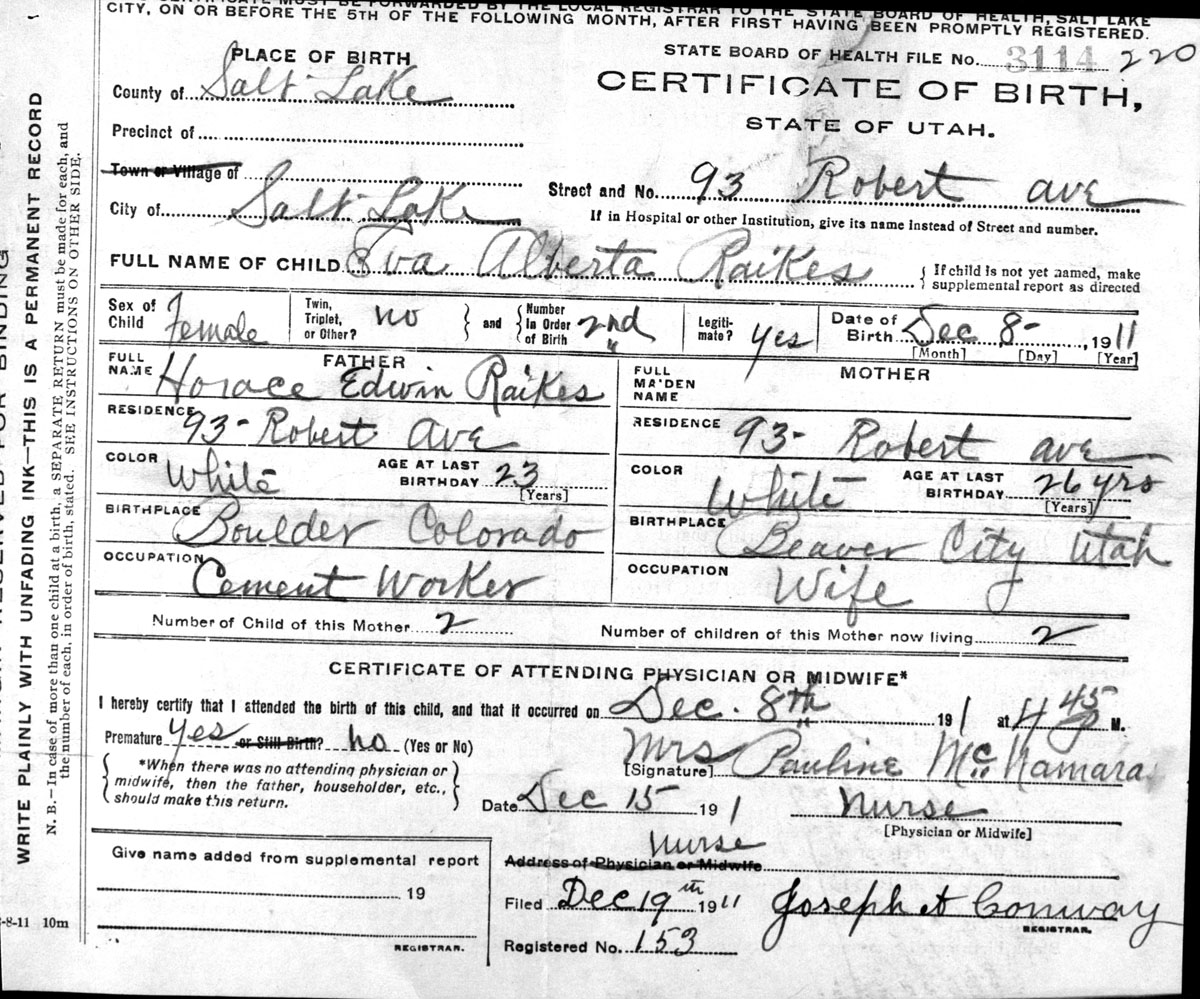 CERTIFICATE MUST BE FORWARDED BY THE LOCAL REGISTRAR TO THE STATE BOARD OF HEALTH, SALT LAKE
CITY, ON OR BEFORE THE 5TH OF THE FOLLOWING MONTH, AFTER FIRST HAVING BEEN PROMPTLY REGISTERED.
STATE BOARD OF HEALTH FILE No. 3114 220
PLACE OF BIRTH
CERTIFICATE OF BIRTH,
STATE OF UTAH.
County of Salt Lake
Precinct of
Town or Village of
Street and No. 93 Robert ave
City of Salt Lake
If in Hospital or other Institution, give its name instead of Street and number.
FULL NAME OF CHILD Eva Alberta Raikes { If child is not yet named, make supplemental report as directed
Sex of Child Female Twin, Triplet, or Other? no } and { Number In Order of Birth 2nd Legiti-mate? yes Date of Birth Dec 8- , 1911
[Month] [Day] [Year]
FATHER
FULL NAME Horace Edwin Raikes
RESIDENCE 93- Robert Ave
COLOR White AGE AT LAST BIRTHDAY 23
[Years]
BIRTHPLACE Boulder Colorado
OCCUPATION Cement Worker
MOTHER
FULL MA'DEN NAME
RESIDENCE 93- Robert ave
COLOR White AGE AT LAST BIRTHDAY 26 yrs
[Years]
BIRTHPLACE Beaver City Utah
OCCUPATION Wife
Number of Child of this Mother 2 Number of children of this Mother now living 2
CERTIFICATE OF ATTENDING PHYSICIAN OR MIDWIFE*
I hereby certify that I attended the birth of this child, and that it occurred on Dec. 8th 191 1 at 4 45 P M.
Premature yes or Still Birth? no (Yes or No)
*When there was no attending physician or
midwife, then the father, householder, etc.,
should make this return.
[Signature] Mrs Pauline McNamara
Date Dec 15 191 1 Nurse
[Physician or Midwife]
Nurse
Address of Physician or Midwife
Give name added from supplemental report
19
REGISTRAR.
Filed Dec 19th 1911 Joseph A Conway
REGISTRAR.
Registered No. 153
-8-11 10m
RESERVED FOR BINDING
WRITE PLAINLY WITH UNFADING INK—THIS IS A PERMANENT RECORD
N. B.—In case of more than one child at a birth, a SEPARATE RETURN must be made for each, and
the number of each, in order of birth, stated. SEE INSTRUCTIONS ON OTHER SIDE.